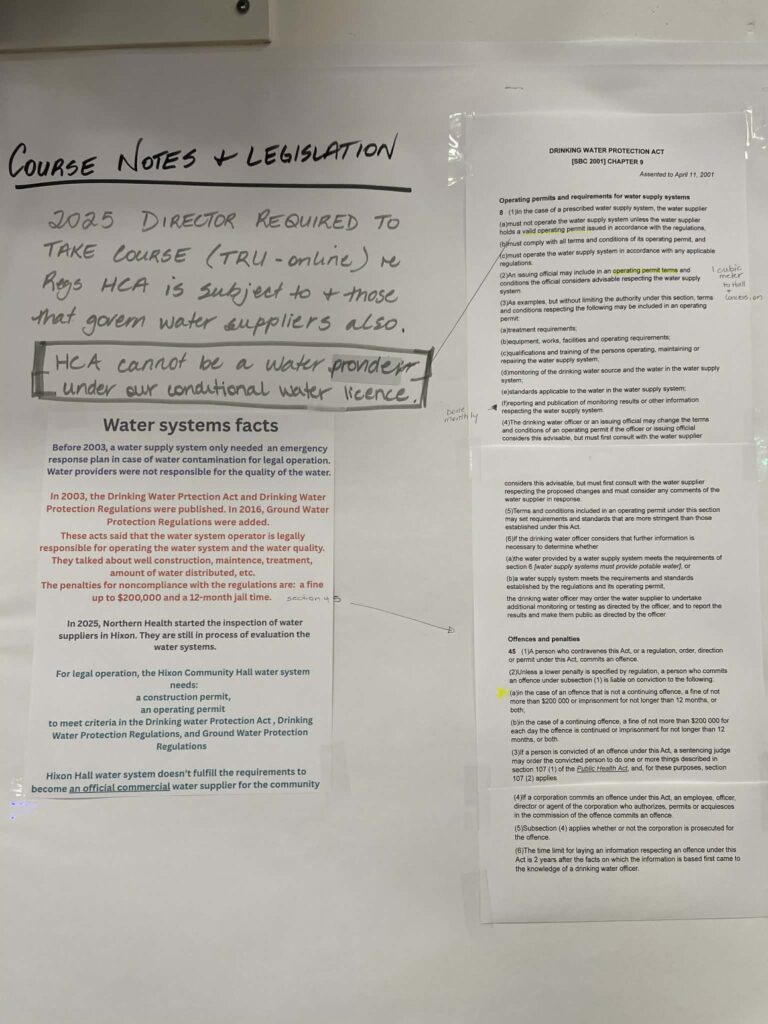 COURSE NOTES + LEGISLATION
2025 DIRECTOR REQUIRED TO
TAKE COURSE (TRU-online) re
Regs HCA is subject to + those
that govern water suppliers also.
HCA cannot be a water provider
under our conditional water licence.
Water systems facts
Before 2003, a water supply system only needed an emergency
response plan in case of water contamination for legal operation.
Water providers were not responsible for the quality of the water.
In 2003, the Drinking Water Prtection Act and Drinking Water
Protection Regulations were published. In 2016, Ground Water
Protection Regulations were added.
These acts said that the water system operator is legally
responsible for operating the water system and the water quality.
They talked about well construction, maintence, treatment,
amount of water distributed, etc.
The penalties for noncompliance with the regulations are: a fine
up to $200,000 and a 12-month jail time.
section 45
In 2025, Northern Health started the inspection of water
suppliers in Hixon. They are still in process of evaluation the
water systems.
For legal operation, the Hixon Community Hall water system
needs:
a construction permit,
an operating permit
to meet criteria in the Drinking water Protection Act , Drinking
Water Protection Regulations, and Ground Water Protection
Regulations
Hixon Hall water system doesn't fulfill the requirements to
become an official commercial water supplier for the community
DRINKING WATER PROTECTION ACT
[SBC 2001] CHAPTER 9
Assented to April 11, 2001
Operating permits and requirements for water supply systems
8 (1)In the case of a prescribed water supply system, the water supplier
(a)must not operate the water supply system unless the water supplier
holds a valid operating permit issued in accordance with the regulations,
(b)must comply with all terms and conditions of its operating permit, and
(c)must operate the water supply system in accordance with any applicable
regulations.
(2)An issuing official may include in an operating permit terms and
conditions the official considers advisable respecting the water supply
system.
1 cubic
meter
to Hall
+
concession
(3)As examples, but without limiting the authority under this section, terms
and conditions respecting the following may be included in an operating
permit:
(a)treatment requirements;
(b)equipment, works, facilities and operating requirements;
(c)qualifications and training of the persons operating, maintaining or
repairing the water supply system;
(d)monitoring of the drinking water source and the water in the water supply
system;
(e)standards applicable to the water in the water supply system;
done
monthly
(f)reporting and publication of monitoring results or other information
respecting the water supply system.
(4)The drinking water officer or an issuing official may change the terms
and conditions of an operating permit if the officer or issuing official
considers this advisable, but must first consult with the water supplier
considers this advisable, but must first consult with the water supplier
respecting the proposed changes and must consider any comments of the
water supplier in response.
(5)Terms and conditions included in an operating permit under this section
may set requirements and standards that are more stringent than those
established under this Act.
(6)If the drinking water officer considers that further information is
necessary to determine whether
(a)the water provided by a water supply system meets the requirements of
section 6 [water supply systems must provide potable water], or
(b)a water supply system meets the requirements and standards
established by the regulations and its operating permit,
the drinking water officer may order the water supplier to undertake
additional monitoring or testing as directed by the officer, and to report the
results and make them public as directed by the officer.
Offences and penalties
45 (1)A person who contravenes this Act, or a regulation, order, direction
or permit under this Act, commits an offence.
(2)Unless a lower penalty is specified by regulation, a person who commits
an offence under subsection (1) is liable on conviction to the following:
(a)in the case of an offence that is not a continuing offence, a fine of not
more than $200 000 or imprisonment for not longer than 12 months, or
both;
(b)in the case of a continuing offence, a fine of not more than $200 000 for
each day the offence is continued or imprisonment for not longer than 12
months, or both.
(3)If a person is convicted of an offence under this Act, a sentencing judge
may order the convicted person to do one or more things described in
section 107 (1) of the Public Health Act, and, for these purposes, section
107 (2) applies.
(4)If a corporation commits an offence under this Act, an employee, officer,
director or agent of the corporation who authorizes, permits or acquiesces
in the commission of the offence commits an offence.
(5)Subsection (4) applies whether or not the corporation is prosecuted for
the offence.
(6)The time limit for laying an information respecting an offence under this
Act is 2 years after the facts on which the information is based first came to
the knowledge of a drinking water officer.